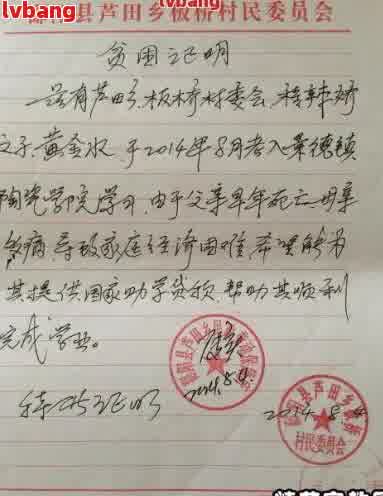 lvbang
lvbang
鄱阳县芦田乡板桥村民委员会
贫困证明
兹有芦田乡板桥村委会程辣娇
之子黄金水于2014年8月考入景德镇
陶瓷学院学习,由于父亲早年死亡,母亲
多病,导致家庭经济困难,希望能为
其提供国家助学贷款,帮助其顺利
完成学业。
特此证明
2014.8.4
2014.8.4
村民委员会